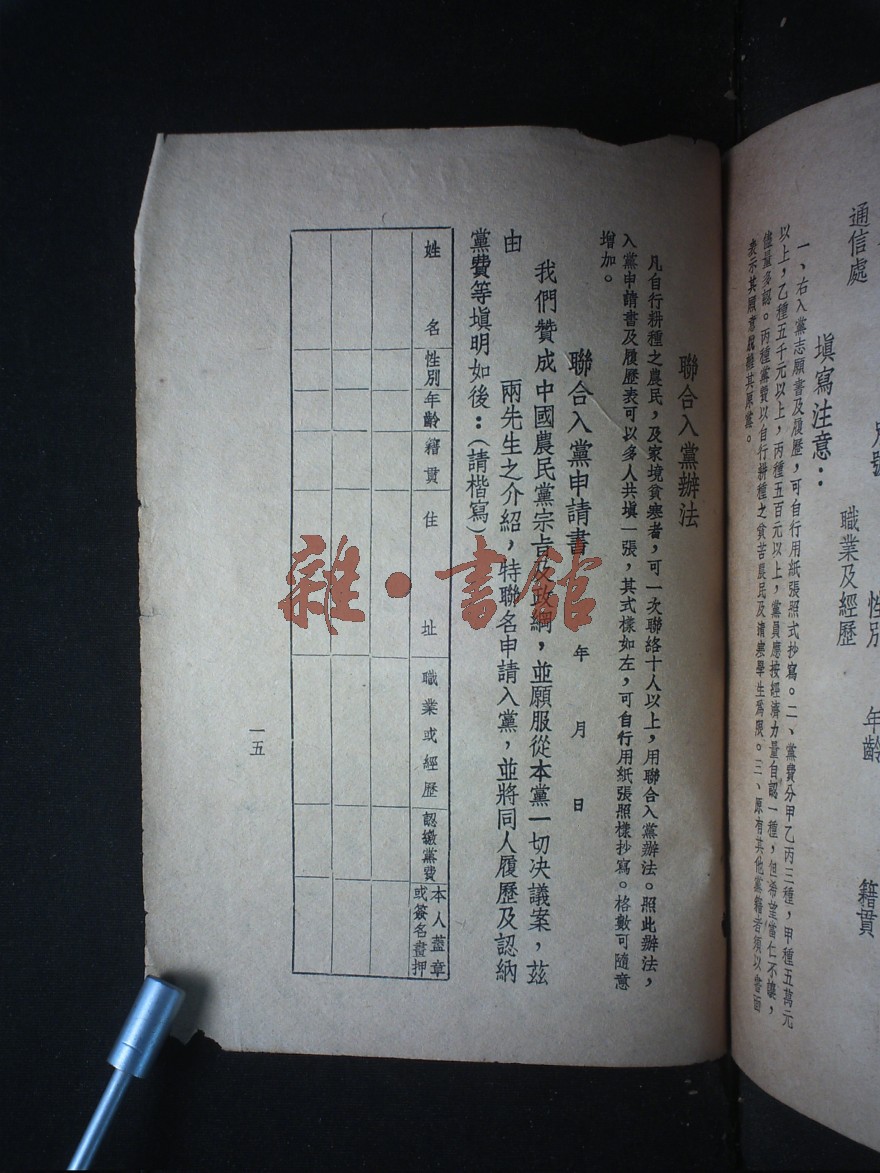 通信處
別號
性別
年齡
籍貫
職業及經歷
填寫注意：
一、右入黨志願書及履歷，可自行用紙張照式抄寫。二、黨費分甲乙丙三種，甲種五萬元
以上，乙種五千元以上，丙種五百元以上，黨員應按經濟力量自認一種，但希望當仁不讓，
儘量多認。丙種黨費以自行耕種之貧苦農民及清寒學生為限。三、原有其他黨籍者須以書面
表示其願意脫離其原黨。
聯合入黨辦法
凡自行耕種之農民，及家境貧寒者，可一次聯絡十人以上，用聯合入黨辦法。照此辦法，
入黨申請書及履歷表可以多人共填一張，其式樣如左，可自行用紙張照樣抄寫。格數可隨意
增加。
聯合入黨申請書　年　月　日
我們贊成中國農民黨宗旨及政綱，並願服從本黨一切決議案，茲
由　兩先生之介紹，特聯名申請入黨，並將同人履歷及認納
黨費等填明如後：（請楷寫）
姓名
性別
年齡
籍貫
住址
職業或經歷
認繳黨費
本人蓋章
或簽名畫押
一五
雜·書館